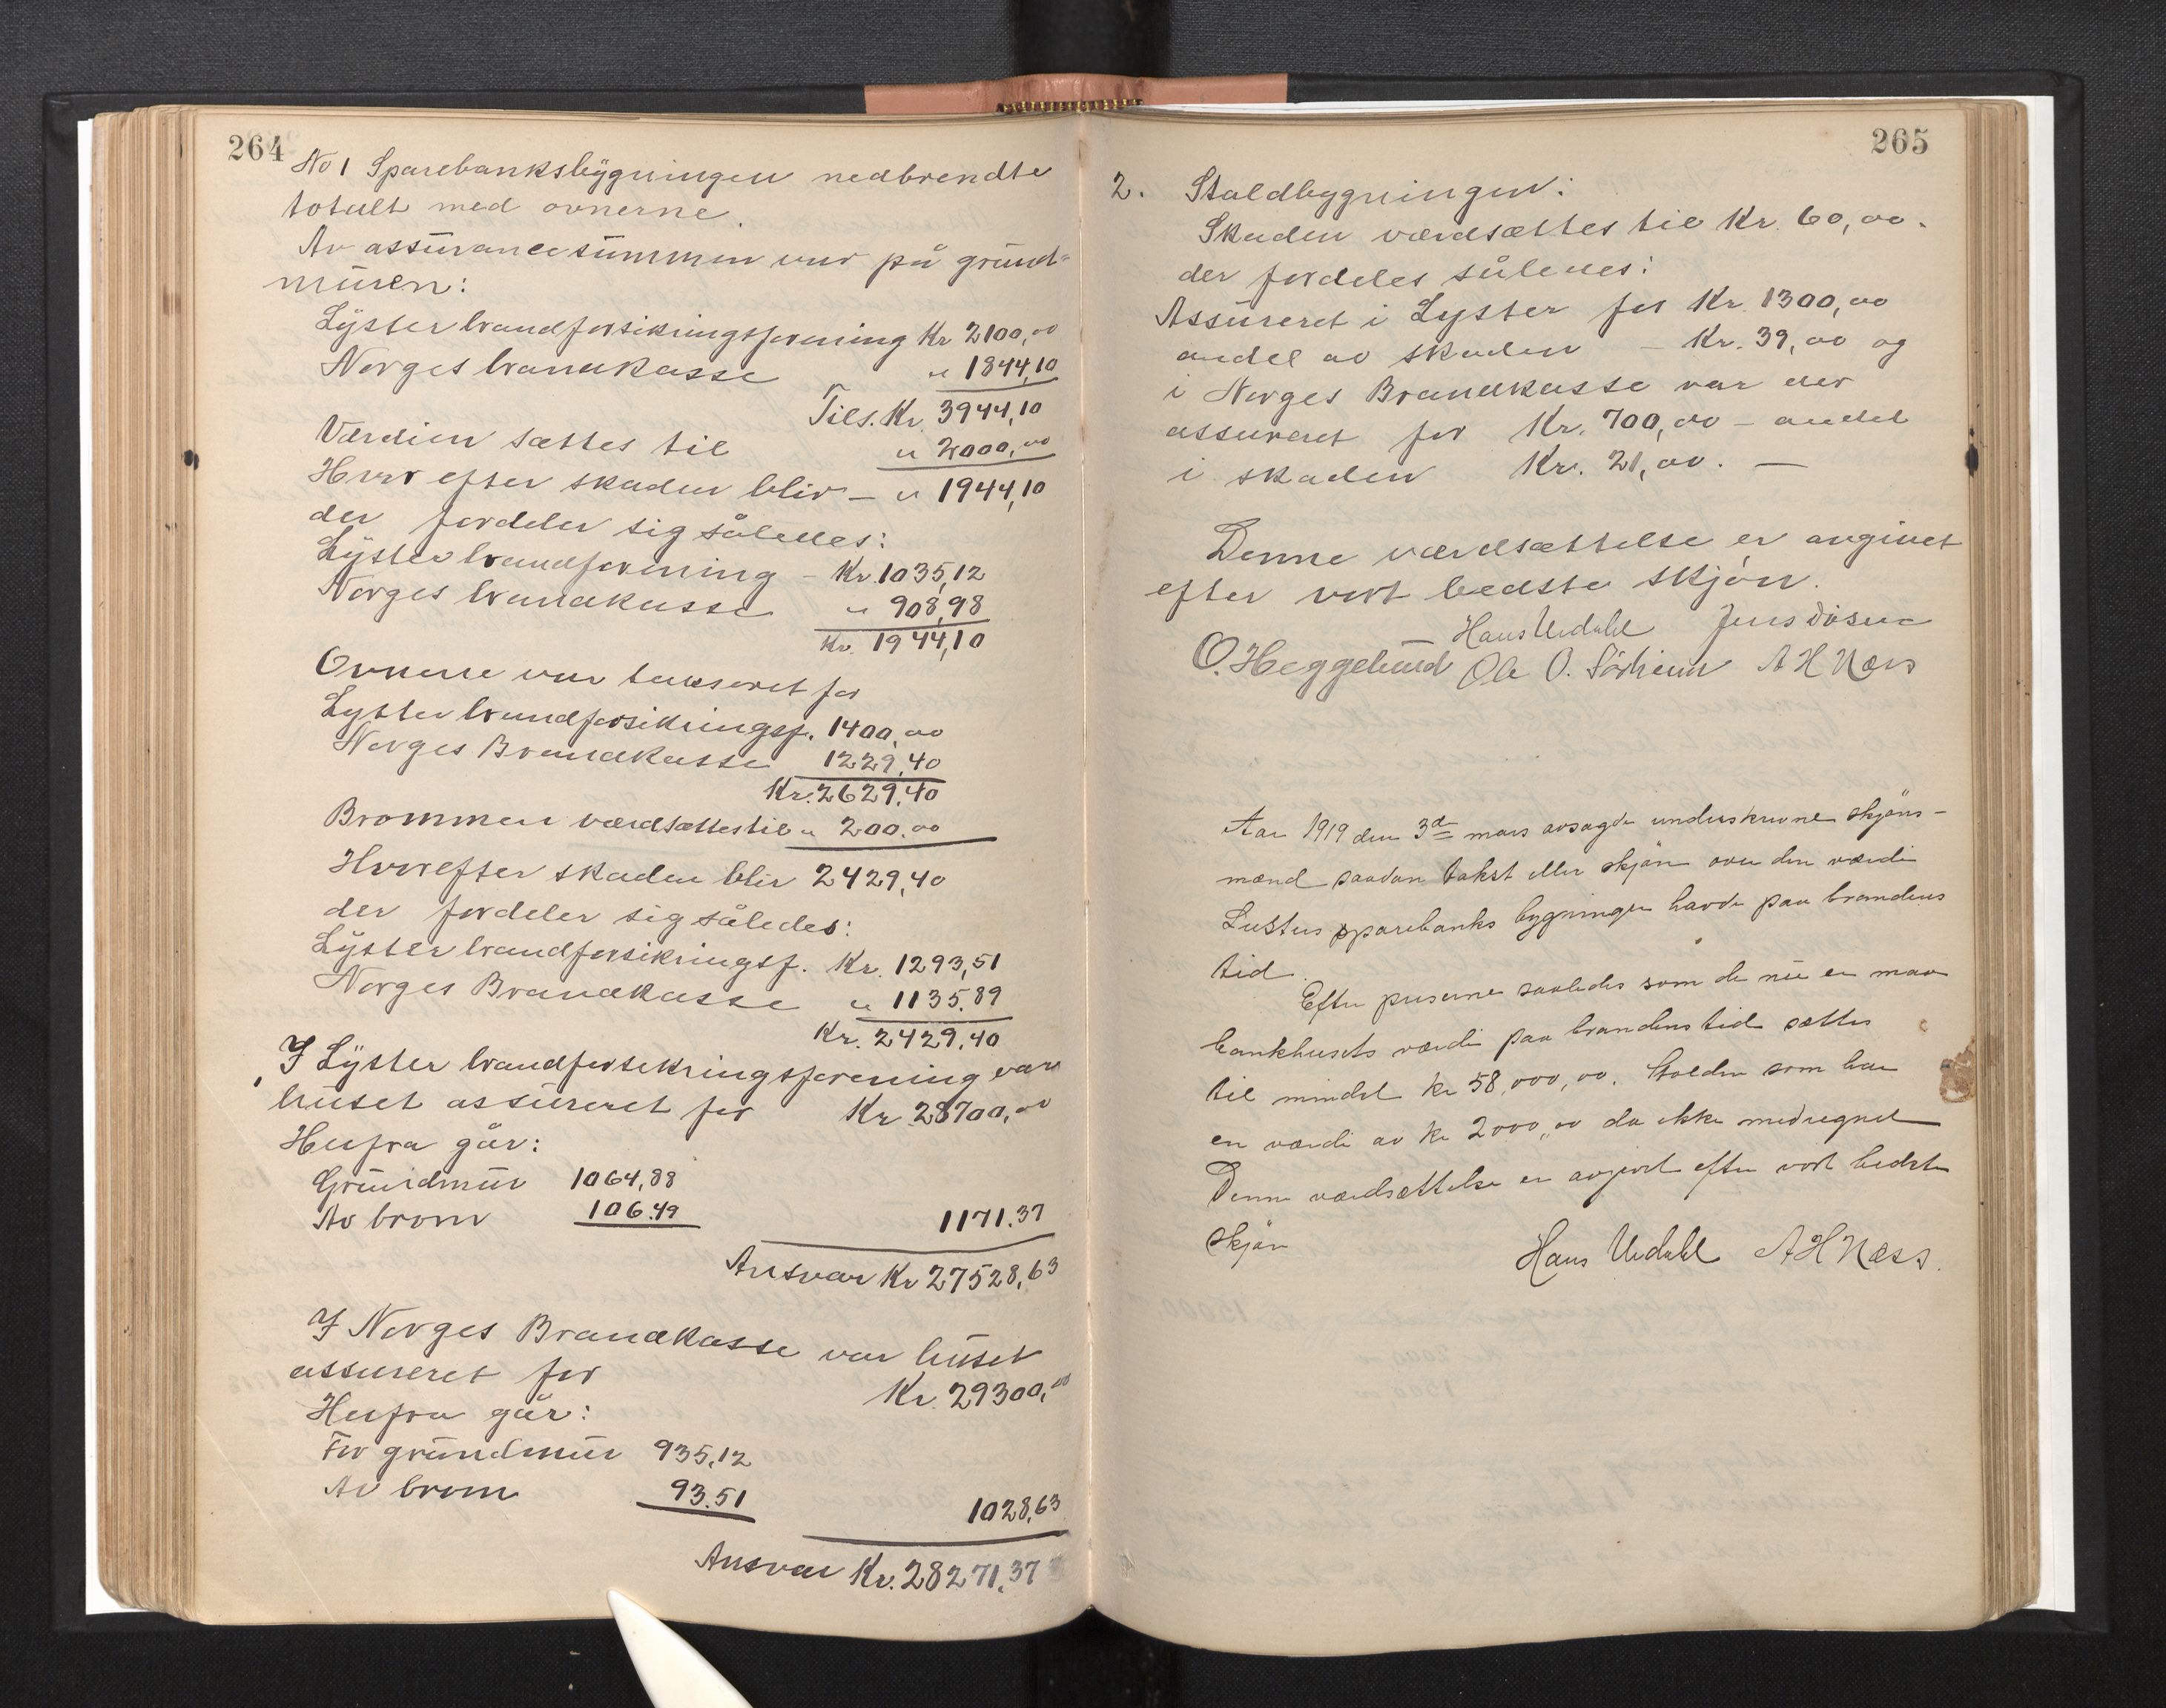 264
No 1 Sparebanksbygningen nedbrendte
totalt med ovnerne.
Av assurancesummen var på grund-
muren:
Lyster brandforsikringsforening Kr 2100,00
Norges brandkasse " 1844,10
Tils. Kr. 3944,10
Værdien sættes til " 2000,00
Hvorefter skaden blir – " 1944,10
der fordeler sig således:
Lyster brandforening – Kr. 1035,12
Norges brandkasse " 908,98
Kr. 1944,10
Ovnene var takseret for
Lyster brandforsikringsf. 1400,00
Norges Brandkasse 1229,40
Kr. 2629,40
Brommen værdsættes til " 200.00
Hvorefter skaden blir 2429,40
der fordeler sig således:
Lyster brandforsikringsf. Kr. 1293,51
Norges Brandkasse " 1135.89
Kr. 2429.40
I Lyster brandforsekringsforening var
huset assureret for Kr 28700,00
Herfra går:
Grundmur 1064,88
Av brom 106.49 1171.37
Ansvar Kr 27528,63
I Norges Brandkasse var huset
assureret for Kr. 29300,00
Herfra går:
For grundmur 935,12
Av brom 93.51 1028,63
Ansvar Kr. 28271,37
265
2. Staldbygningen:
Skaden værdsættes til Kr. 60,00.
der fordeles således:
Assureret i Lyster for Kr. 1300,00
andel av skaden – Kr. 39,00 og
i Norges Brandkasse var der
assureret for Kr. 700,00 – andel
i skaden Kr. 21,00. —
Denne værdsættelse er avgivet
efter vort bedste skjøn.
Hans Uedahl Jens
O. Heggelund Ole O. Sørheim A H Næss
Aar 1919 den 3de mars avsagde underskrivne skjøns-
mænd saadan takst eller skjøn over den værdi
Lusters sparebanks bygninger havde paa brandens
tid.
Efter priserne saaledes som de nu er maa
bankhusets værdi paa brandens tid sættes
til mindst kr 58,000,00. Stalden som har
en værdi av kr 2000,00 da ikke medregnet
Denne værdsættelse er avgivet efter vort bedste
skjøn
Hans Uedahl A H Næss.